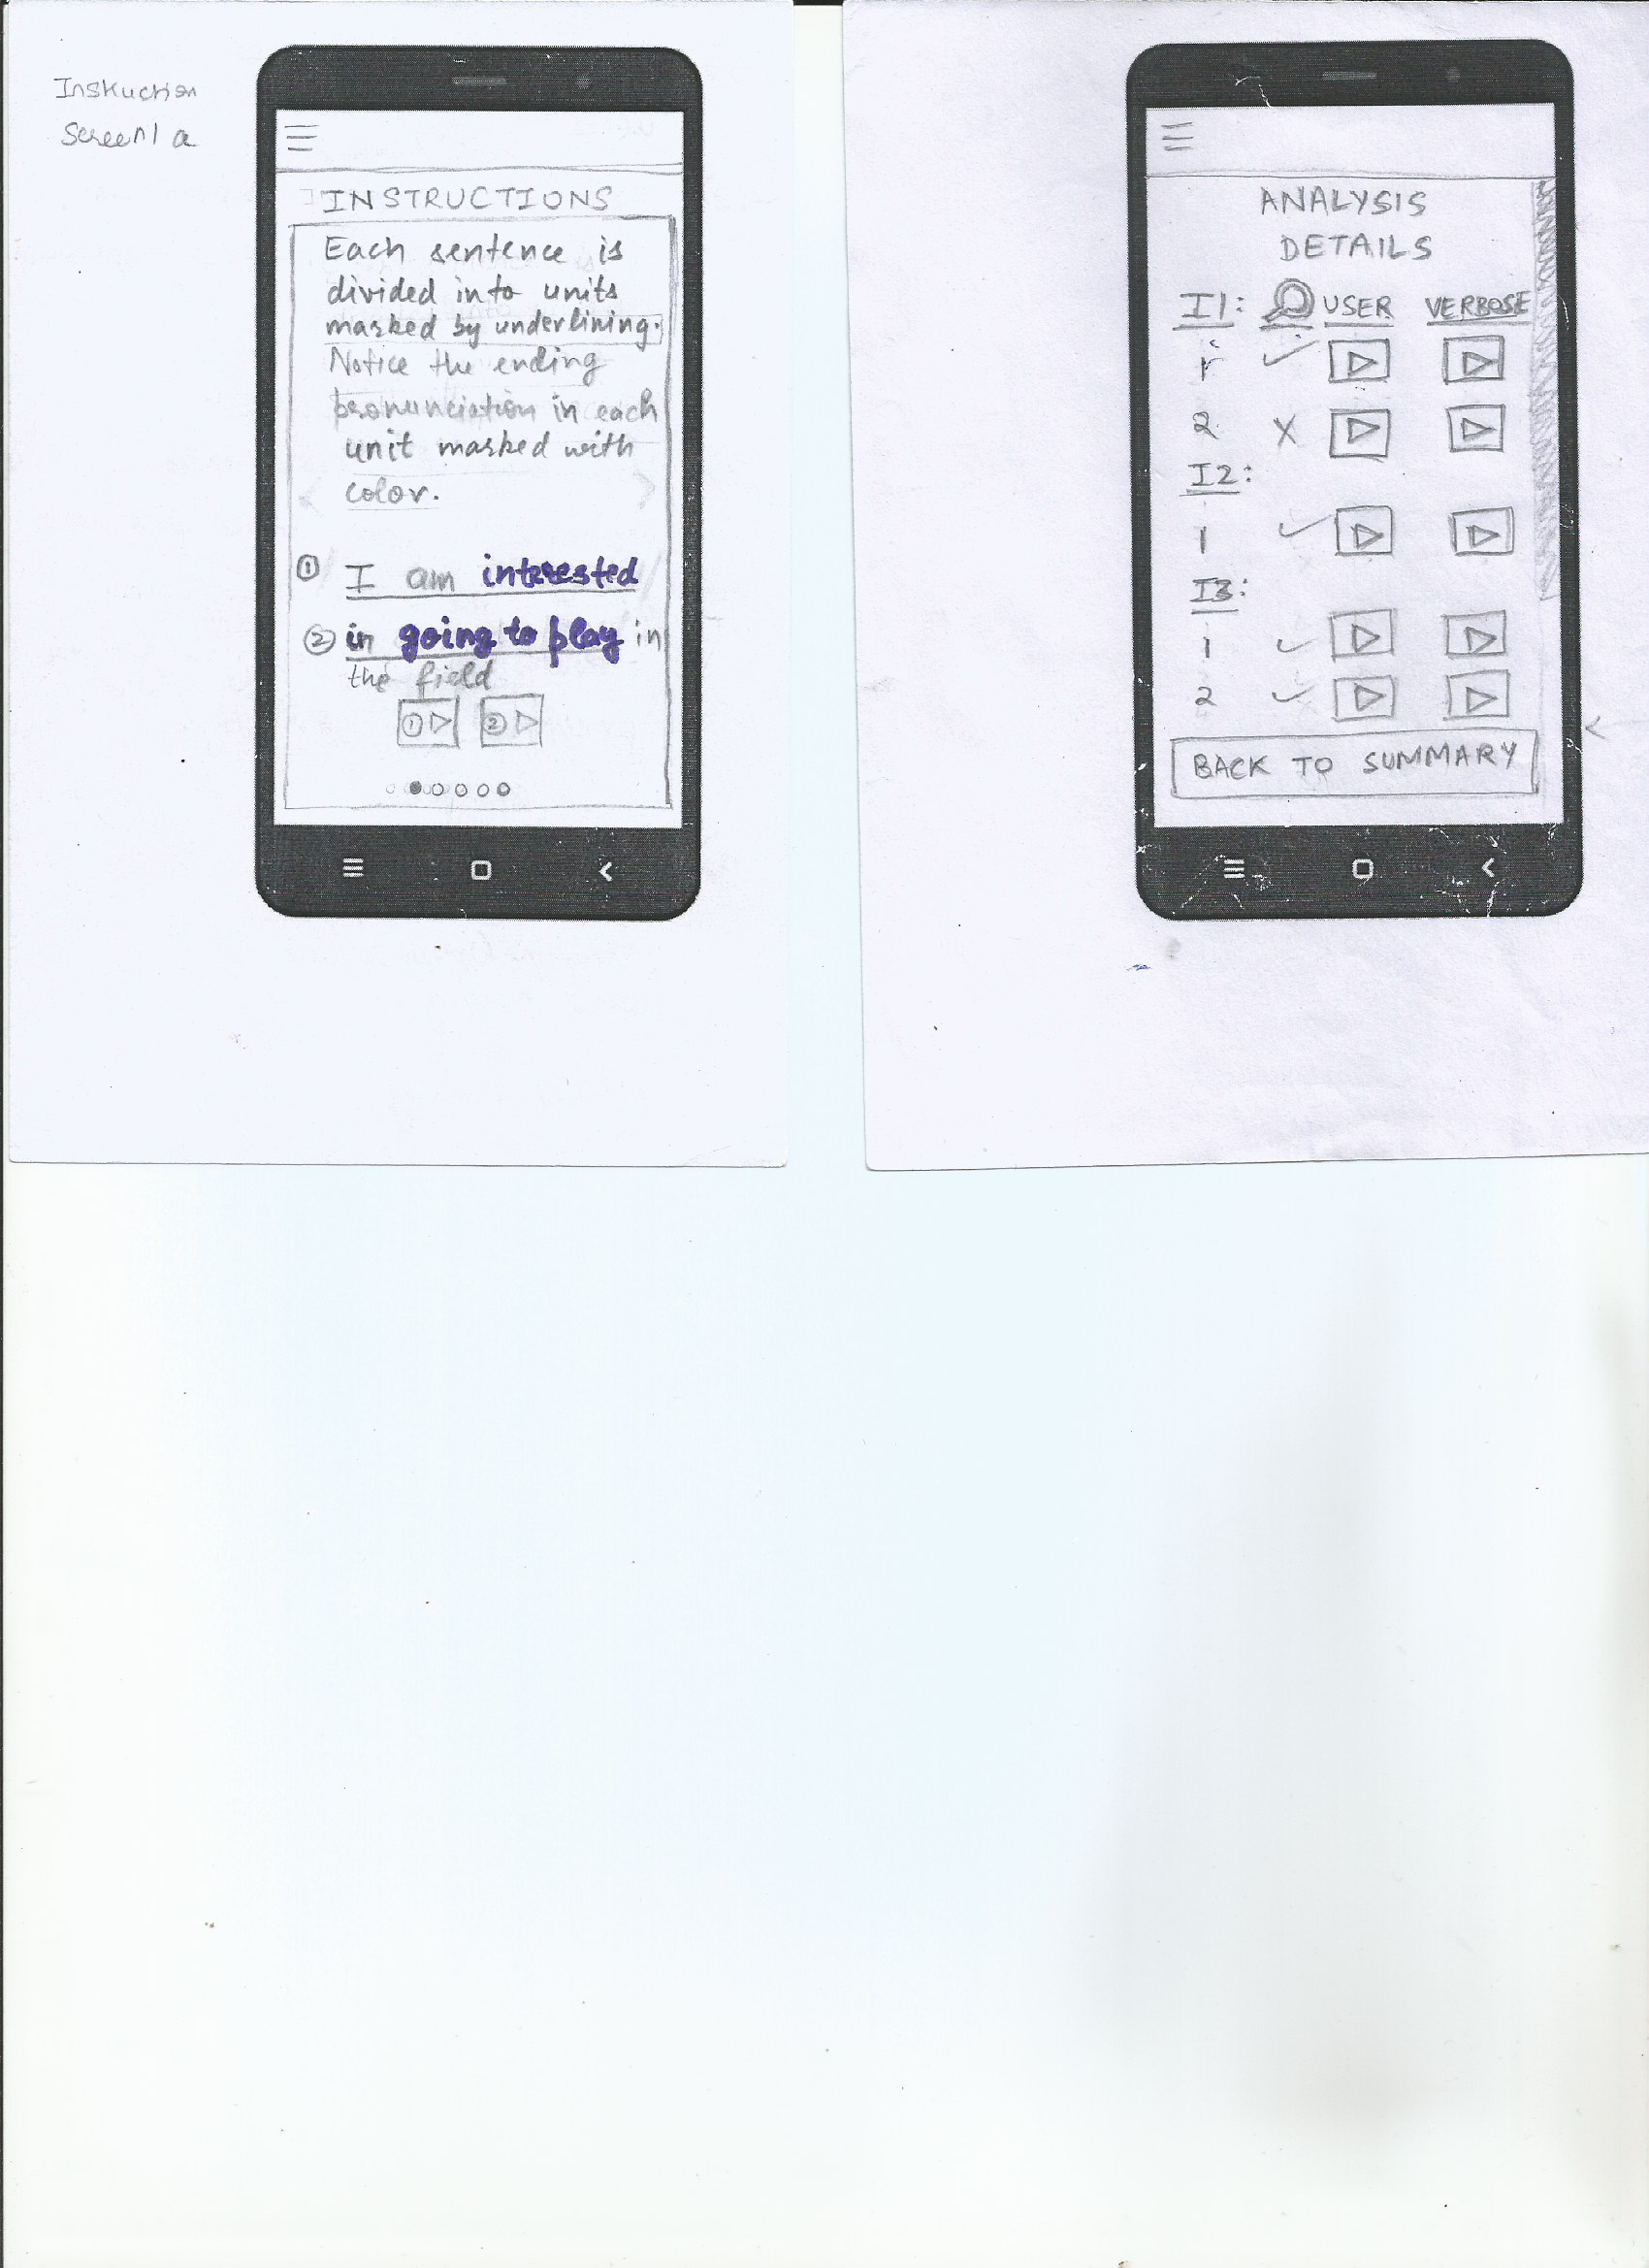 Instruction
Screen 1 a
INSTRUCTIONS
Each sentence is
divided into units
marked by underlining.
Notice the ending
pronunciation in each
unit marked with
color.
① I am interested
② in going to play in
the field
① ②
ANALYSIS
DETAILS
I1: USER VERBOSE
1
2
I2:
1
I3:
1
2
BACK TO SUMMARY